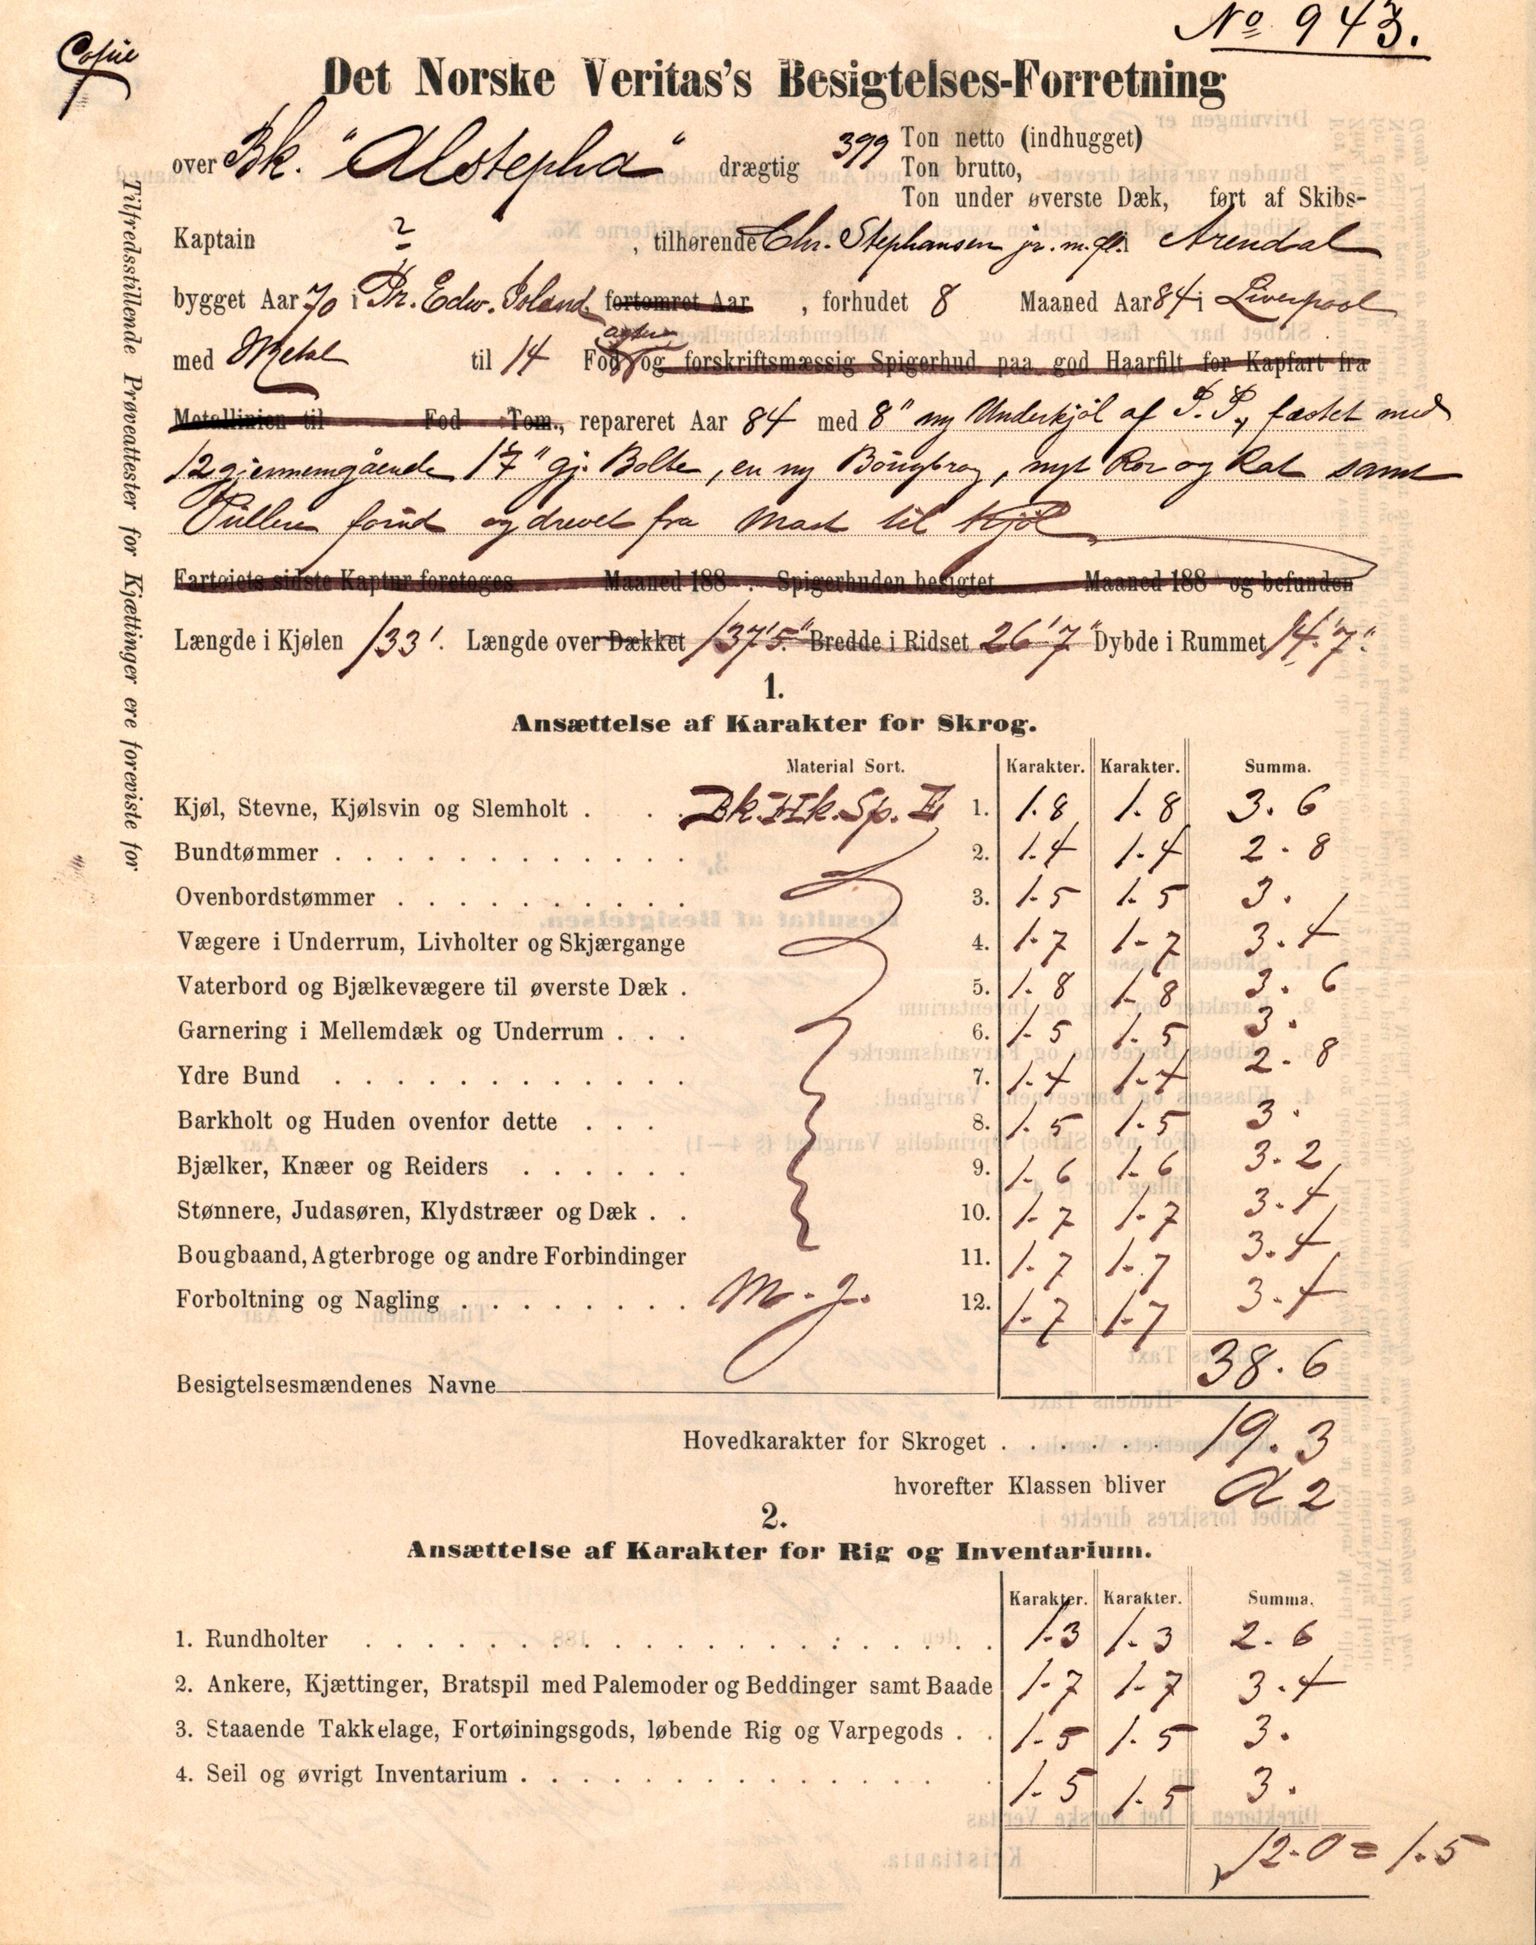 No 943.
Copie
Det Norske Veritas's Besigtelses-Forretning
over Bk. "Alstepha" drægtig 399 Ton netto (indhugget)
Ton brutto,
Ton under øverste Dæk, ført af Skibs-
Kaptain ? , tilhørende Chr. Stephansen jr. m. fl. i Arendal
bygget Aar 70 i Pr. Edw. Island fortømret Aar , forhudet 8 Maaned Aar 84 i Liverpool
med Metal til 14 Fod og forskriftsmæssig Spigerhud paa god Haarfilt for Kapfart fra
agter
Metallinien til Fod Tom., repareret Aar 84 med 8" ny Underkjøl af P. P., fæstet med
12 gjennemgående 1⅞" gj. Bolte, en ny Bougbrog, nyt Ror og Rat samt
forud og drevet fra Mast til Kjøl
Fartøiets sidste Kaptur foretoges Maaned 188 . Spigerhuden besigtet Maaned 188 og befunden
Længde i Kjølen 133'. Længde over Dækket 137'5" Bredde i Ridset 26'7" Dybde i Rummet 14'7".
Tilfredsstillende Prøveattester for Kjættinger ere foreviste for
1.
Ansættelse af Karakter for Skrog.
Material Sort. Karakter. Karakter. Summa.
Kjøl, Stevne, Kjølsvin og Slemholt . . . Bk. Hk. Sp. 1. 1.8 1.8 3.6
Bundtømmer . . . . . . . . . 2. 1.4 1.4 2.8
Ovenbordstømmer . . . . . . . . 3. 1.5 1.5 3.
Vægere i Underrum, Livholter og Skjærgange 4. 1.7 1.7 3.4
Vaterbord og Bjælkevægere til øverste Dæk . 5. 1.8 1.8 3.6
Garnering i Mellemdæk og Underrum . . . 6. 1.5 1.5 3.
Ydre Bund . . . . . . . . . 7. 1.4 1.4 2.8
Barkholt og Huden ovenfor dette . . . 8. 1.5 1.5 3.
Bjælker, Knæer og Reiders . . . . . 9. 1.6 1.6 3.2
Stønnere, Judasøren, Klydstræer og Dæk . . 10. 1.7 1.7 3.4
Bougbaand, Agterbroge og andre Forbindinger 11. 1.7 1.7 3.4
Forboltning og Nagling . . . . . . . M. g. 12. 1.7 1.7 3.4
38.6
Besigtelsesmændenes Navne
Hovedkarakter for Skroget . . . . . . 19.3
hvorefter Klassen bliver A 2
2.
Ansættelse af Karakter for Rig og Inventarium.
Karakter. Karakter. Summa.
1. Rundholter . . . . . . . . . . . . . . . . 1.3 1.3 2.6
2. Ankere, Kjættinger, Bratspil med Palemoder og Beddinger samt Baade 1.7 1.7 3.4
3. Staaende Takkelage, Fortøiningsgods, løbende Rig og Varpegods . . 1.5 1.5 3.
4. Seil og øvrigt Inventarium . . . . . . . . . . . . 1.5 1.5 3.
12.0 = 1.5